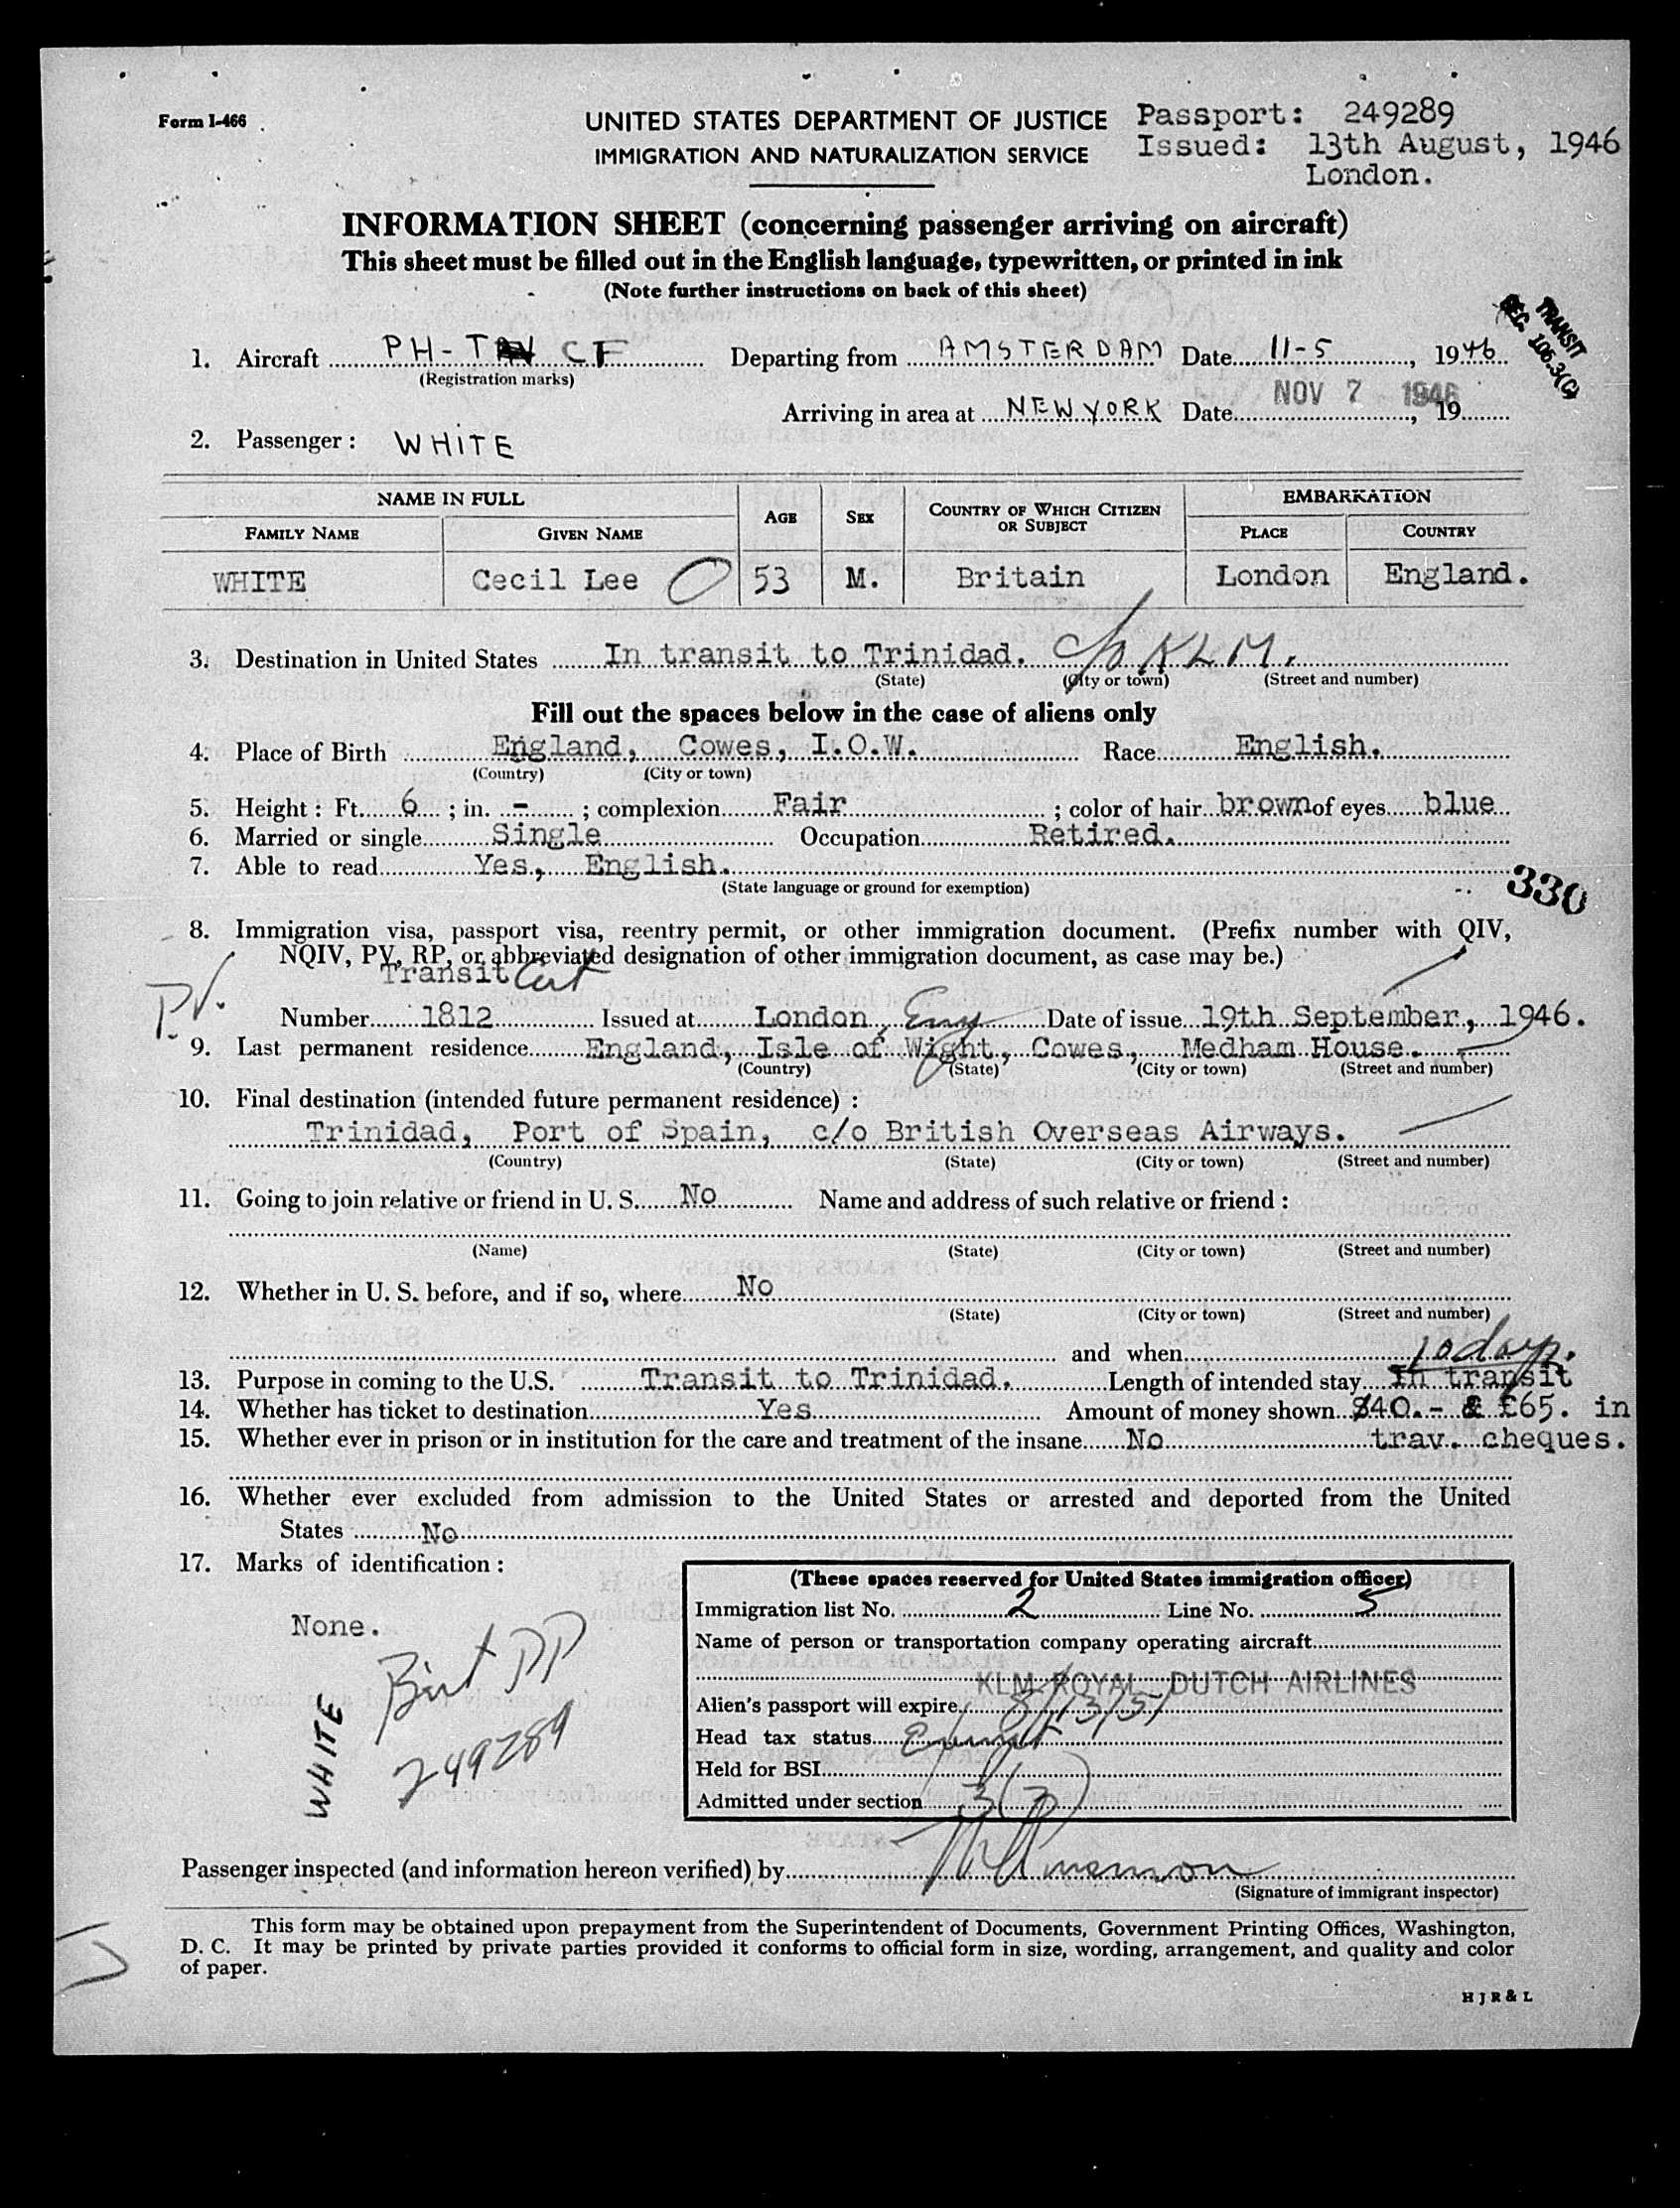 Form I-466
UNITED STATES DEPARTMENT OF JUSTICE
IMMIGRATION AND NATURALIZATION SERVICE
Passport: 249289
Issued: 13th August, 1946
London.
INFORMATION SHEET (concerning passenger arriving on aircraft)
This sheet must be filled out in the English language, typewritten, or printed in ink
(Note further instructions on back of this sheet)
TRANSIT
SEC. 106.3(C)
1. Aircraft PH-T CF Departing from AMSTERDAM Date 11-5, 1946
(Registration marks)
Arriving in area at NEW YORK Date NOV 7 1946, 19
2. Passenger: WHITE
NAME IN FULL AGE SEX COUNTRY OF WHICH CITIZEN OR SUBJECT EMBARKATION
FAMILY NAME GIVEN NAME PLACE COUNTRY
WHITE Cecil Lee 53 M. Britain London England.
3. Destination in United States In transit to Trinidad. c/o KLM.
(State) (City or town) (Street and number)
Fill out the spaces below in the case of aliens only
4. Place of Birth England, Cowes, I.O.W. Race English.
(Country) (City or town)
5. Height: Ft. 6; in. -; complexion Fair; color of hair brown of eyes blue
6. Married or single Single Occupation Retired.
7. Able to read Yes, English.
(State language or ground for exemption)
330
8. Immigration visa, passport visa, reentry permit, or other immigration document. (Prefix number with QIV,
NQIV, PV, RP, or abbreviated designation of other immigration document, as case may be.)
Transit Cert
P.V.
Number 1812 Issued at London, Eng Date of issue 19th September, 1946.
9. Last permanent residence England, Isle of Wight, Cowes, Medham House.
(Country) (State) (City or town) (Street and number)
10. Final destination (intended future permanent residence) :
Trinidad, Port of Spain, c/o British Overseas Airways.
(Country) (State) (City or town) (Street and number)
11. Going to join relative or friend in U. S. No Name and address of such relative or friend :
(Name) (State) (City or town) (Street and number)
12. Whether in U. S. before, and if so, where No
(State) (City or town) (Street and number)
and when
10 days.
13. Purpose in coming to the U.S. Transit to Trinidad. Length of intended stay In transit
14. Whether has ticket to destination Yes Amount of money shown $40.- & £65. in
15. Whether ever in prison or in institution for the care and treatment of the insane No trav. cheques.
16. Whether ever excluded from admission to the United States or arrested and deported from the United
States No
17. Marks of identification :
None.
WHITE
Brit PP
249289
(These spaces reserved for United States immigration officer)
Immigration list No. 2 Line No. 5
Name of person or transportation company operating aircraft
KLM ROYAL DUTCH AIRLINES
Alien's passport will expire 8/13/51
Head tax status Exempt
Held for BSI
Admitted under section 3(3)
Passenger inspected (and information hereon verified) by
(Signature of immigrant inspector)
This form may be obtained upon prepayment from the Superintendent of Documents, Government Printing Offices, Washington,
D. C. It may be printed by private parties provided it conforms to official form in size, wording, arrangement, and quality and color
of paper.
H J R & L